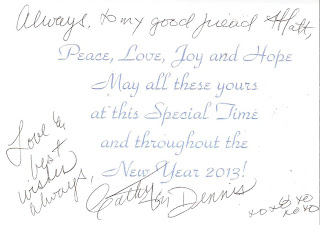 Always, to my good friend Matt,
Peace, Love, Joy and Hope
May all these yours
at this Special Time
and throughout the
New Year 2013!
Love &
best
wishes
always,
Cathy Dennis
xoxoxo
xoxo